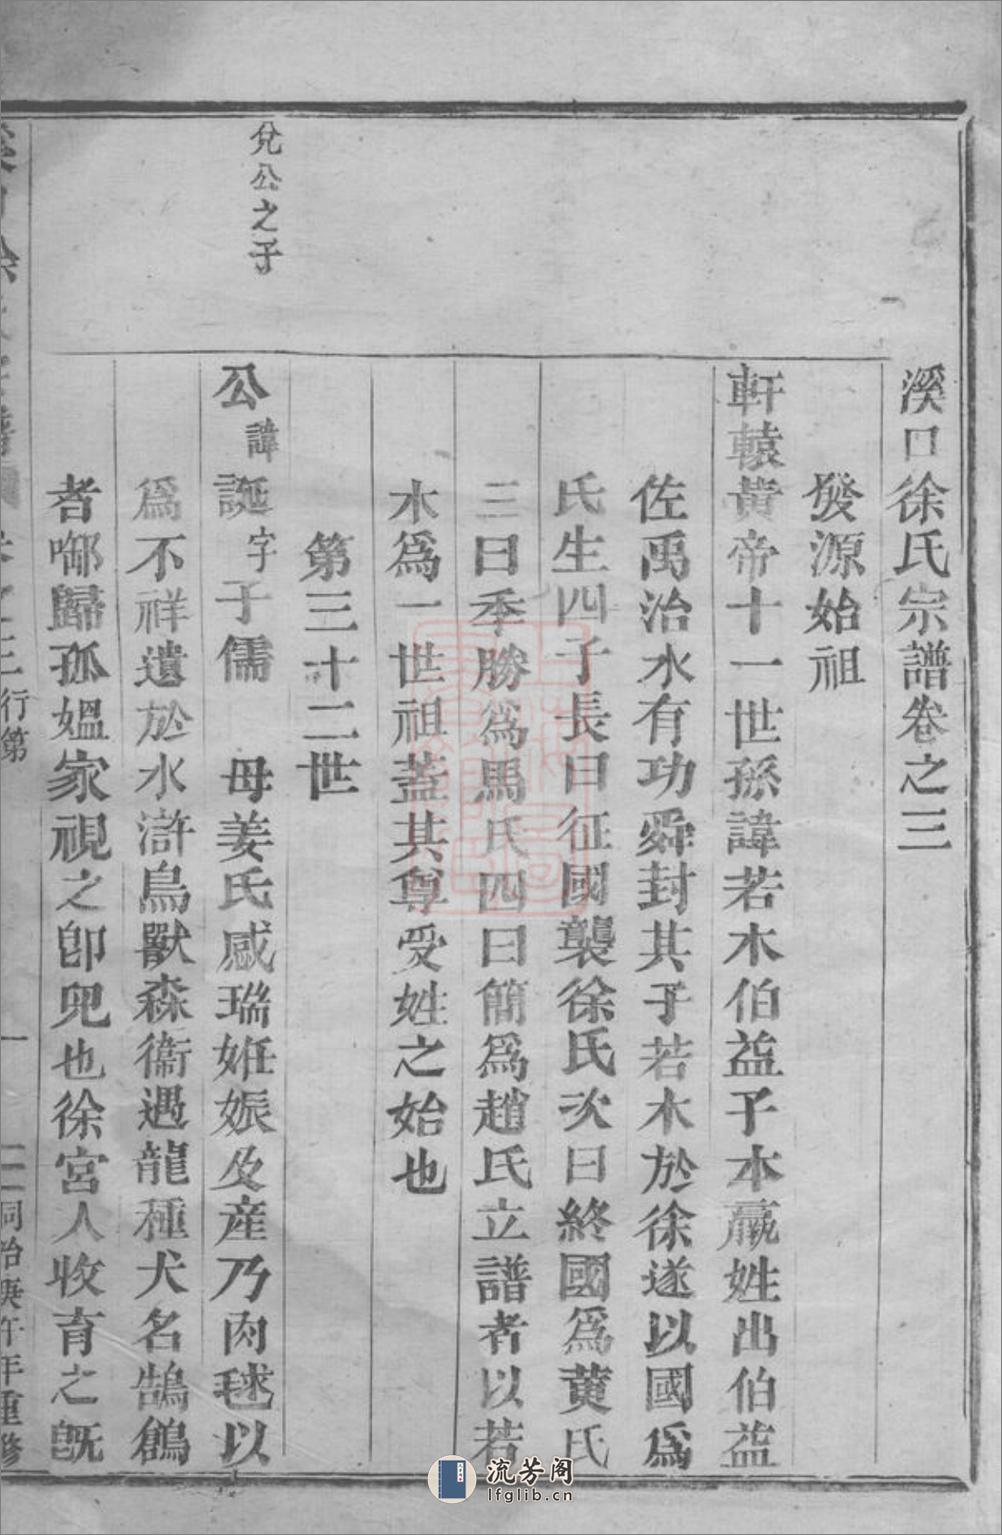 溪口徐氏宗譜卷之三
發源始祖
軒轅黄帝十一世孫諱若木伯益子本嬴姓出伯益
佐禹治水有功舜封其子若木於徐遂以國爲
氏生四子長曰征國襲徐氏次曰終國爲黄氏
三曰季勝爲馬氏四曰簡爲趙氏立譜者以若
木爲一世祖蓋其尊受姓之始也
第三十二世
兌公之子
公諱誕字子儒　母姜氏感瑞姙娠及産乃肉毬以
爲不祥遺於水滸鳥獸森衞遇龍種犬名鵠鶬
者啣歸孤媼家視之卽兒也徐宮人收育之旣
徐氏宗譜 卷之三 行第 一 同治庚午年重修
流芳阁
lfglib.cn